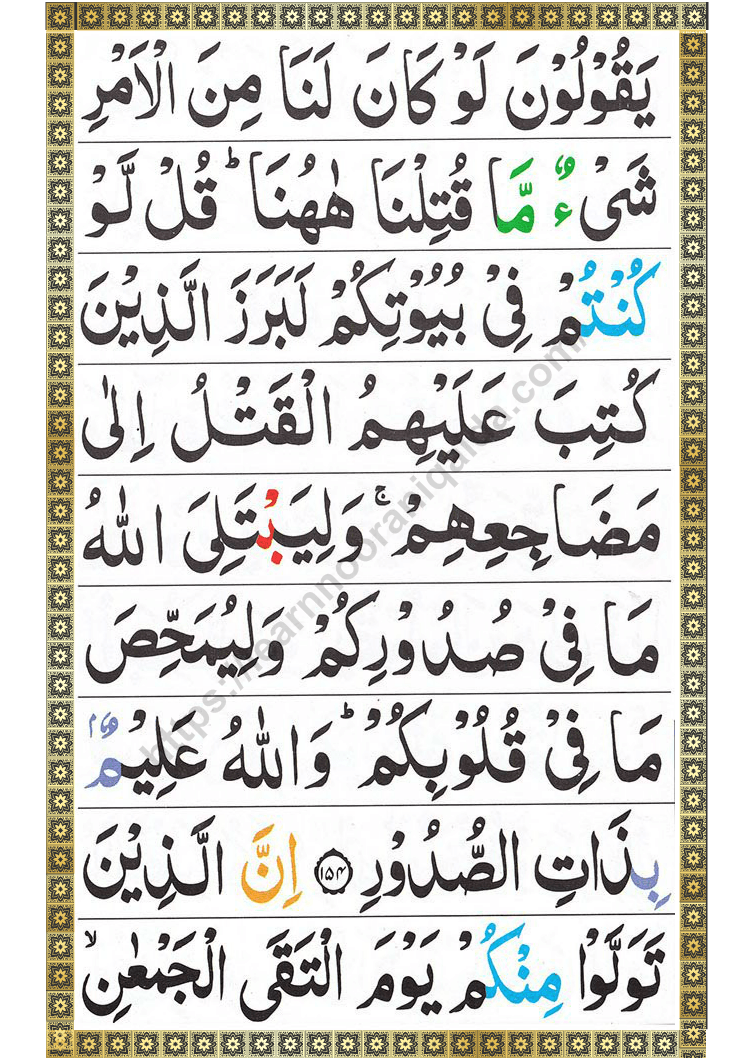 يَقُوْلُوْنَ لَوْ كَانَ لَنَا مِنَ الْاَمْرِ
شَیْءٌ مَّا قُتِلْنَا هٰهُنَا ؕ قُلْ لَّوْ
كُنْتُمْ فِیْ بُيُوْتِكُمْ لَبَرَزَ الَّذِيْنَ
كُتِبَ عَلَيْهِمُ الْقَتْلُ اِلٰی
مَضَاجِعِهِمْ ۚ وَلِيَبْتَلِیَ اللّٰهُ
مَا فِیْ صُدُوْرِكُمْ وَلِيُمَحِّصَ
مَا فِیْ قُلُوْبِكُمْ ؕ وَاللّٰهُ عَلِيْمٌۢ
بِذَاتِ الصُّدُوْرِ ﴿۱۵۴﴾ اِنَّ الَّذِيْنَ
تَوَلَّوْا مِنْكُمْ يَوْمَ الْتَقَی الْجَمْعٰنِ ۙ
https://learnnooraniqaida.com/